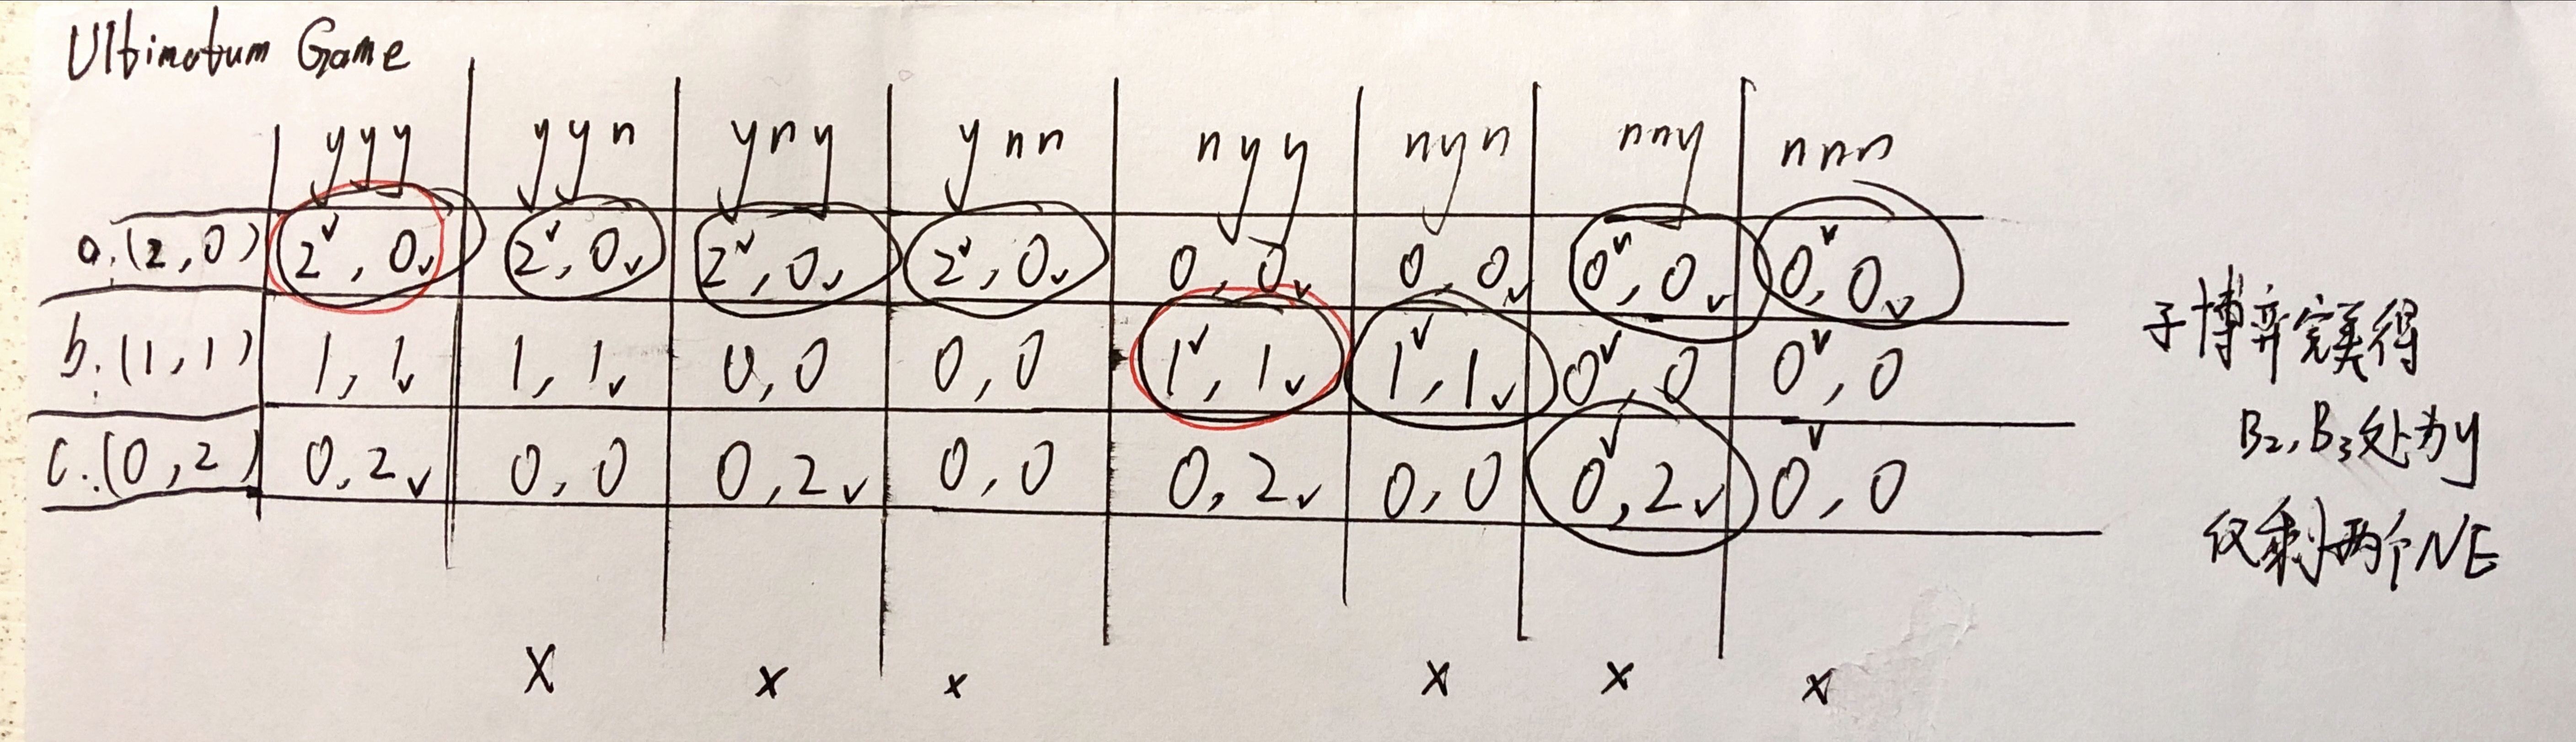 Ultimatum Game
yyy yyn yny ynn nyy nyn nny nnn
a.(2,0) 2✓,0✓ 2✓,0✓ 2✓,0✓ 2✓,0✓ 0,0✓ 0,0✓ 0✓,0✓ 0✓,0✓
b.(1,1) 1,1✓ 1,1✓ 0,0 0,0 1✓,1✓ 1✓,1✓ 0✓,0 0✓,0
c.(0,2) 0,2✓ 0,0 0,2✓ 0,0 0,2✓ 0,0 0✓,2✓ 0✓,0
x x x x x x
子博弈完美得
B₂,B₃处为y
仅剩两个NE